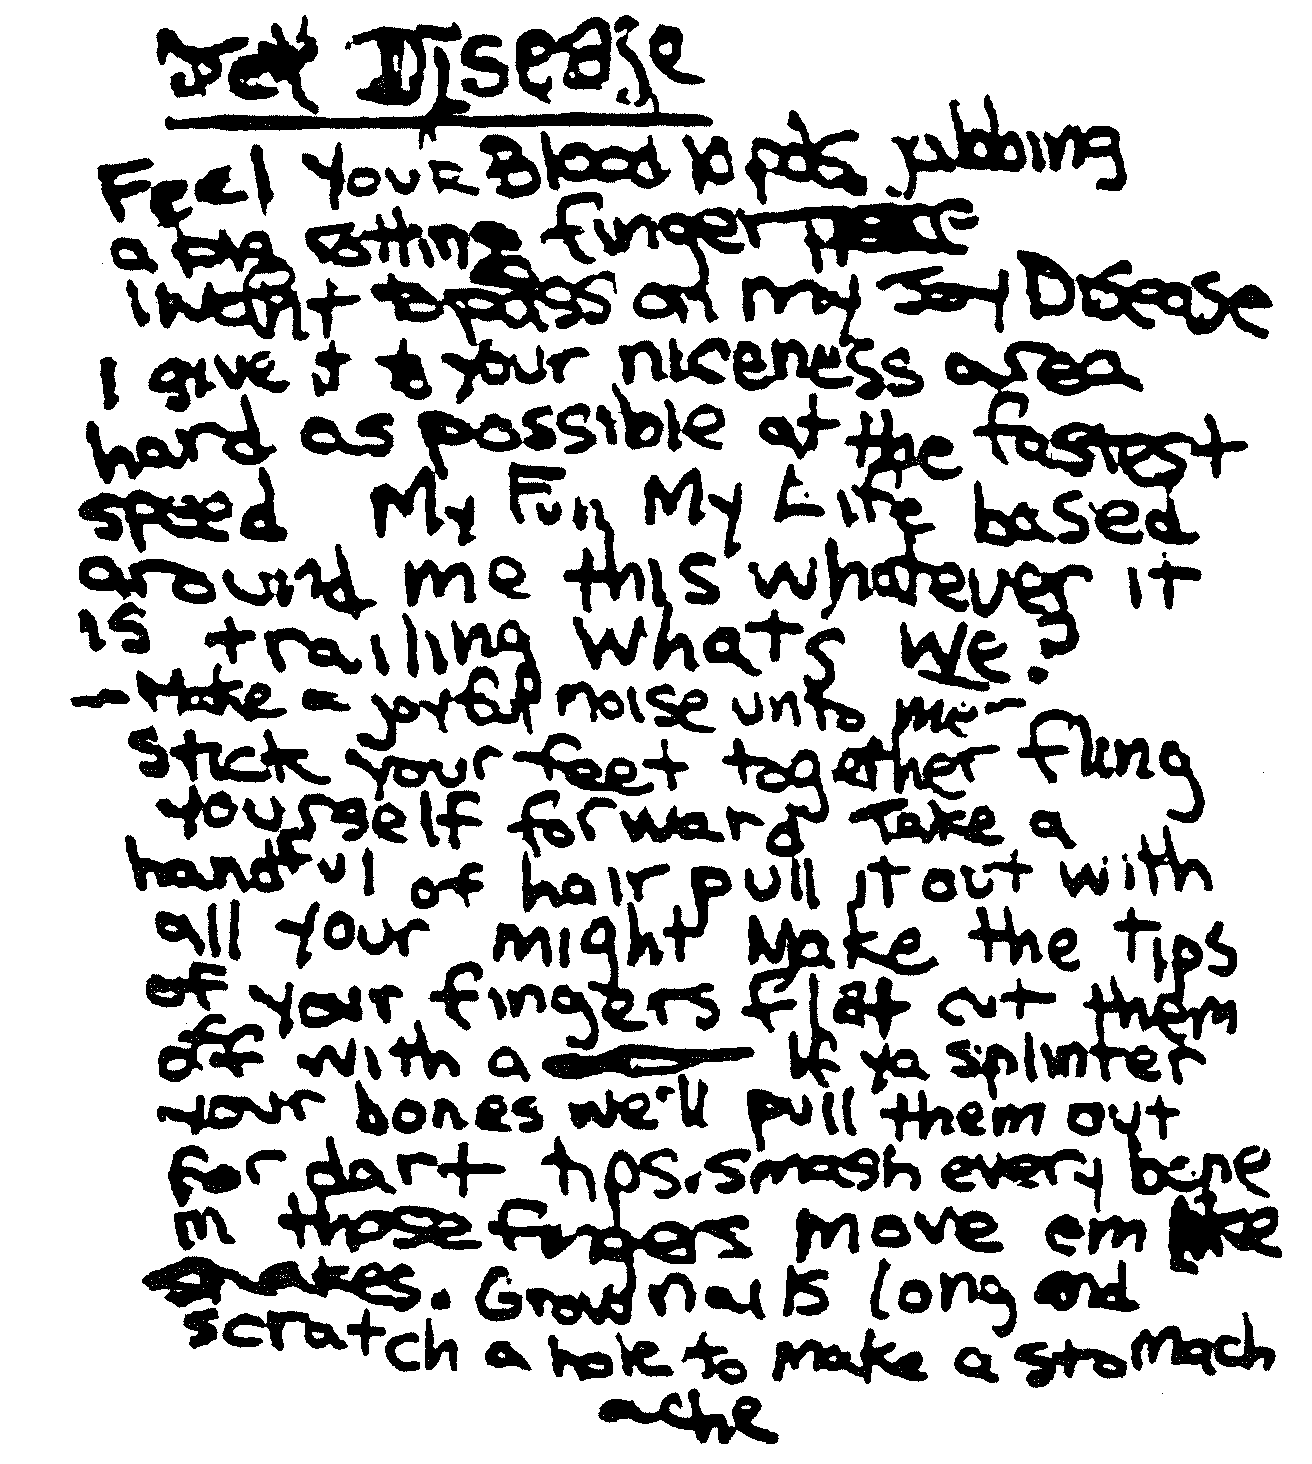 Disease
Feel your Blood pots jubbing
a big rotting finger
i want to pass on my Joy Disease
I give it to your niceness area
hard as possible at the fastest
speed My Fun My Life based
around me this whatever it
is trailing whats We?
- Make a joyful noise unto me -
stick your feet together flung
yourself forward Take a
handful of hair pull it out with
all your might Make the tips
of your fingers flat cut them
off with a If ya splinter
your bones we'll pull them out
for dart tips. smash every bone
in those fingers move em like
snakes. Grow nails long and
scratch a hole to make a stomach
ache